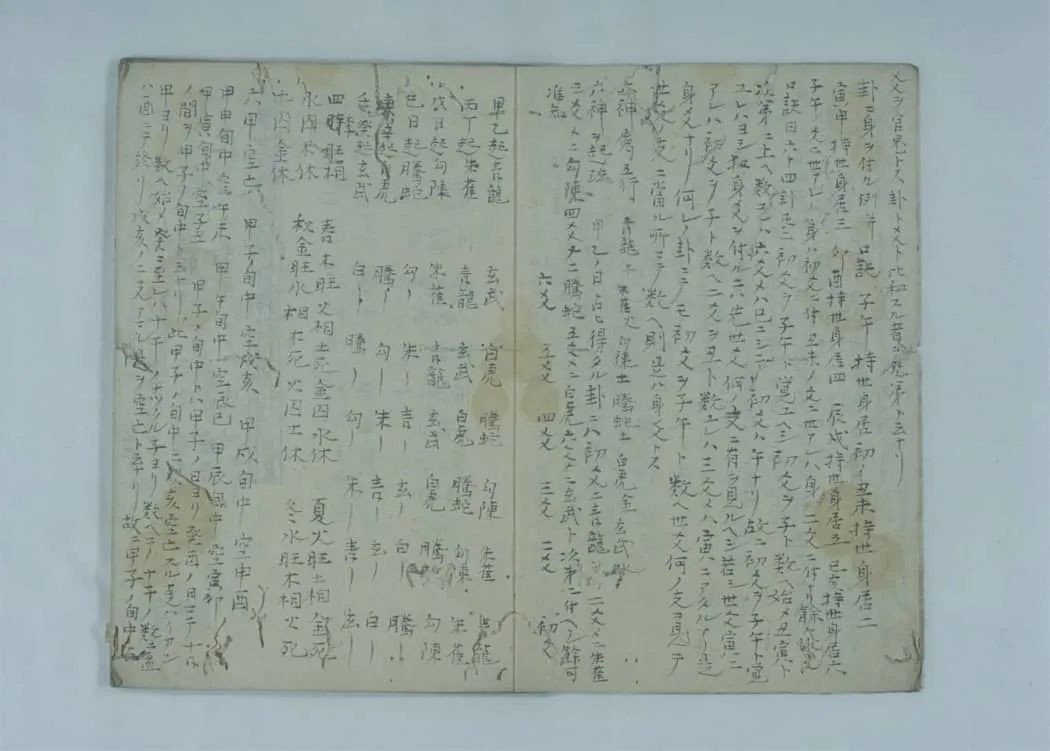 爻ヲ官鬼トス卦ト爻ト比和スル者ヲ兄弟トスナリ
卦ニ身ヲ付ル例并口訣 子午持世身居初 丑未持世身居二
寅申持世身居三 卯酉持世身居四 辰戌持世身居五 巳亥持世身居六
子午ノ爻ニ世アレハ身ハ初爻ニ付丑未ノ爻ニ世アレハ身ハ二爻ニ付ナリ餘ハ
口訣曰六十四卦𪜈ニ初爻ヲ子午ト覚エヘシ初爻ヲ子ト数ヘ始メ丑寅ト
次第ニ上ヘ数エレハ六爻メハ巳ニシテ初爻ハ午ナリ故ニ初爻ヲ子午ト覚
エレハヨシ扨身爻ヲ付ルニハ先世爻ノ何ノ支ニ有ヲ見ルヘシ若シ世爻寅ニ
アレハ初爻ヲ子ト数ヘ二爻ヲ丑ト数エレハ三爻メハ寅ニアタルナリ是
身爻ナリ何レノ卦ニテモ初爻ヲ子午ト数ヘ世爻何ノ支ヲ見テ
世爻ノ支ニ當ル所ニテ数ヘ則是ハ身爻トス
六神属五行 青龍木 朱雀火 勾陳土 騰蛇土 白虎金 玄武水
六神ヲ起法 甲乙ノ日占得タル卦ニハ初爻ニ青龍 二爻メニ朱雀
三爻メニ勾陳四爻メニ騰蛇五爻メニ白虎六爻メニ玄武ト次第ニ付ヘシ餘可
准知 六爻 五爻 四爻 三爻 二爻 初爻
甲乙起青龍 玄武 白虎 騰蛇 勾陳 朱雀 青龍
丙丁起朱雀 青龍 玄武 白虎 騰蛇 勾陳 朱雀
戊日起勾陳 朱雀 青龍 玄武 白虎 騰蛇 勾陳
己日起騰蛇 勾〻 朱〻 青〻 玄〻 白〻 騰〻
庚辛起白虎 騰〻 勾〻 朱〻 青〻 玄〻 白〻
壬癸起玄武 白〻 騰〻 勾〻 朱〻 青〻 玄〻
四時旺相 春木旺火相土死金囚水休 夏火旺土相金死
水囚木休 秋金旺水相木死火囚土休 冬水旺木相火死
土囚金休
六甲空亡 甲子旬中空戌亥 甲戌旬中空申酉
甲申旬中空午未 甲午旬中空辰巳 甲辰旬中空寅卯
甲寅旬中空子丑 甲子ノ旬中トハ甲子ノ日ヨリ癸酉ノ日マテ十日
ノ間ヲ甲子ノ旬中ト云ナリ此甲子ノ旬中ニハ戌亥空亡スル
甲ヨリ数ヘ始メ癸ニ至レハ十干
ハ酉ニテ終リ戌亥ノ二支アマル是ヲ空亡ト云ナリ故ニ甲子ノ旬中